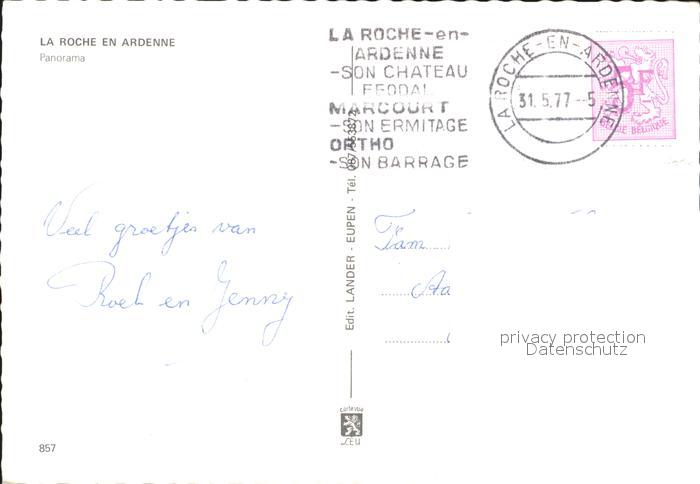 LA ROCHE EN ARDENNE
Panorama
LA ROCHE-en-
ARDENNE
-SON CHATEAU
FEODAL
MARCOURT
-SON ERMITAGE
ORTHO
-SON BARRAGE
LA ROCHE-EN-ARDENNE
31.5.77--5
BELGIQUE
Veel groetjes van
Roel en Jenny
Edit. LANDER - EUPEN - Tél.
Fam
Aa
privacy protection
Datenschutz
CEU
857